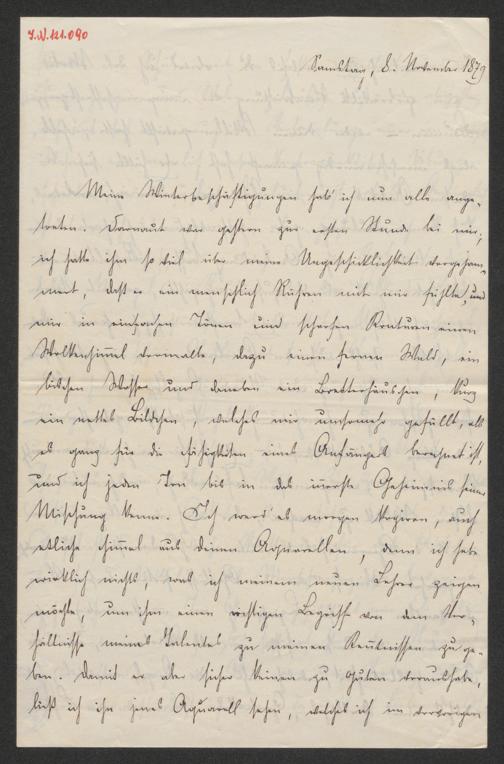 I.N. 121.090
Samstag, 8. November 1879
Meine Winterbeschäftigungen hab' ich nun alle ange-
treten. Darnaut war gestern zur ersten Stunde bei mir;
ich hatte ihm so viel über meine Ungeschicklichkeit vorgejam-
mert, daß er ein menschlich Rühren mit mir fühlte, und
mir in einfachen Tönen und scharfen Konturen einen
Wolkenhimmel vormalte, dazu einen fernen Wald, ein
bischen Wasser und daneben ein Bretterhäuschen, kurz
ein nettes Bildchen, welches mir umsomehr gefällt, als
es ganz für die Fähigkeiten eines Anfängers berechnet ist,
und ich jeden Ton bis in das innerste Geheimnis seiner
Mischung kenne. Ich werd' es morgen kopiren, auch
etliche Himmel aus deinen Aquarellen, denn ich habe
wirklich nichts, was ich meinem neuen Lehrer zeigen
möchte, um ihm einen richtigen Begriff von dem Ver-
hältnisse meines Talentes zu meinen Kenntnissen zu ge-
ben. Damit er aber sicher keinen zu guten voraushabe,
ließ ich ihn jenes Aquarell sehen, welches ich im vorvorigen